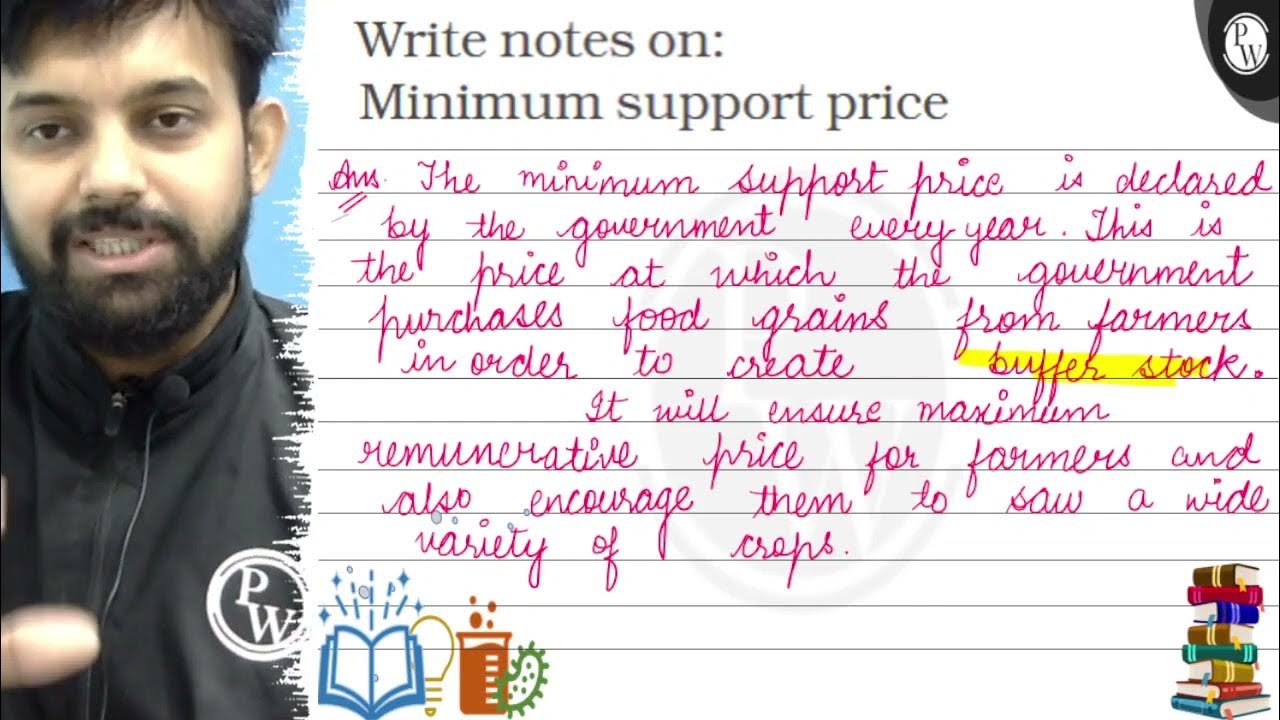 Write notes on:
Minimum support price
Ans. The minimum support price is declared
by the government every year. This is
the price at which the government
purchases food grains from farmers
in order to create buffer stock.
It will ensure maximum
remunerative price for farmers and
also encourage them to saw a wide
variety of crops.
PW
PW
PW